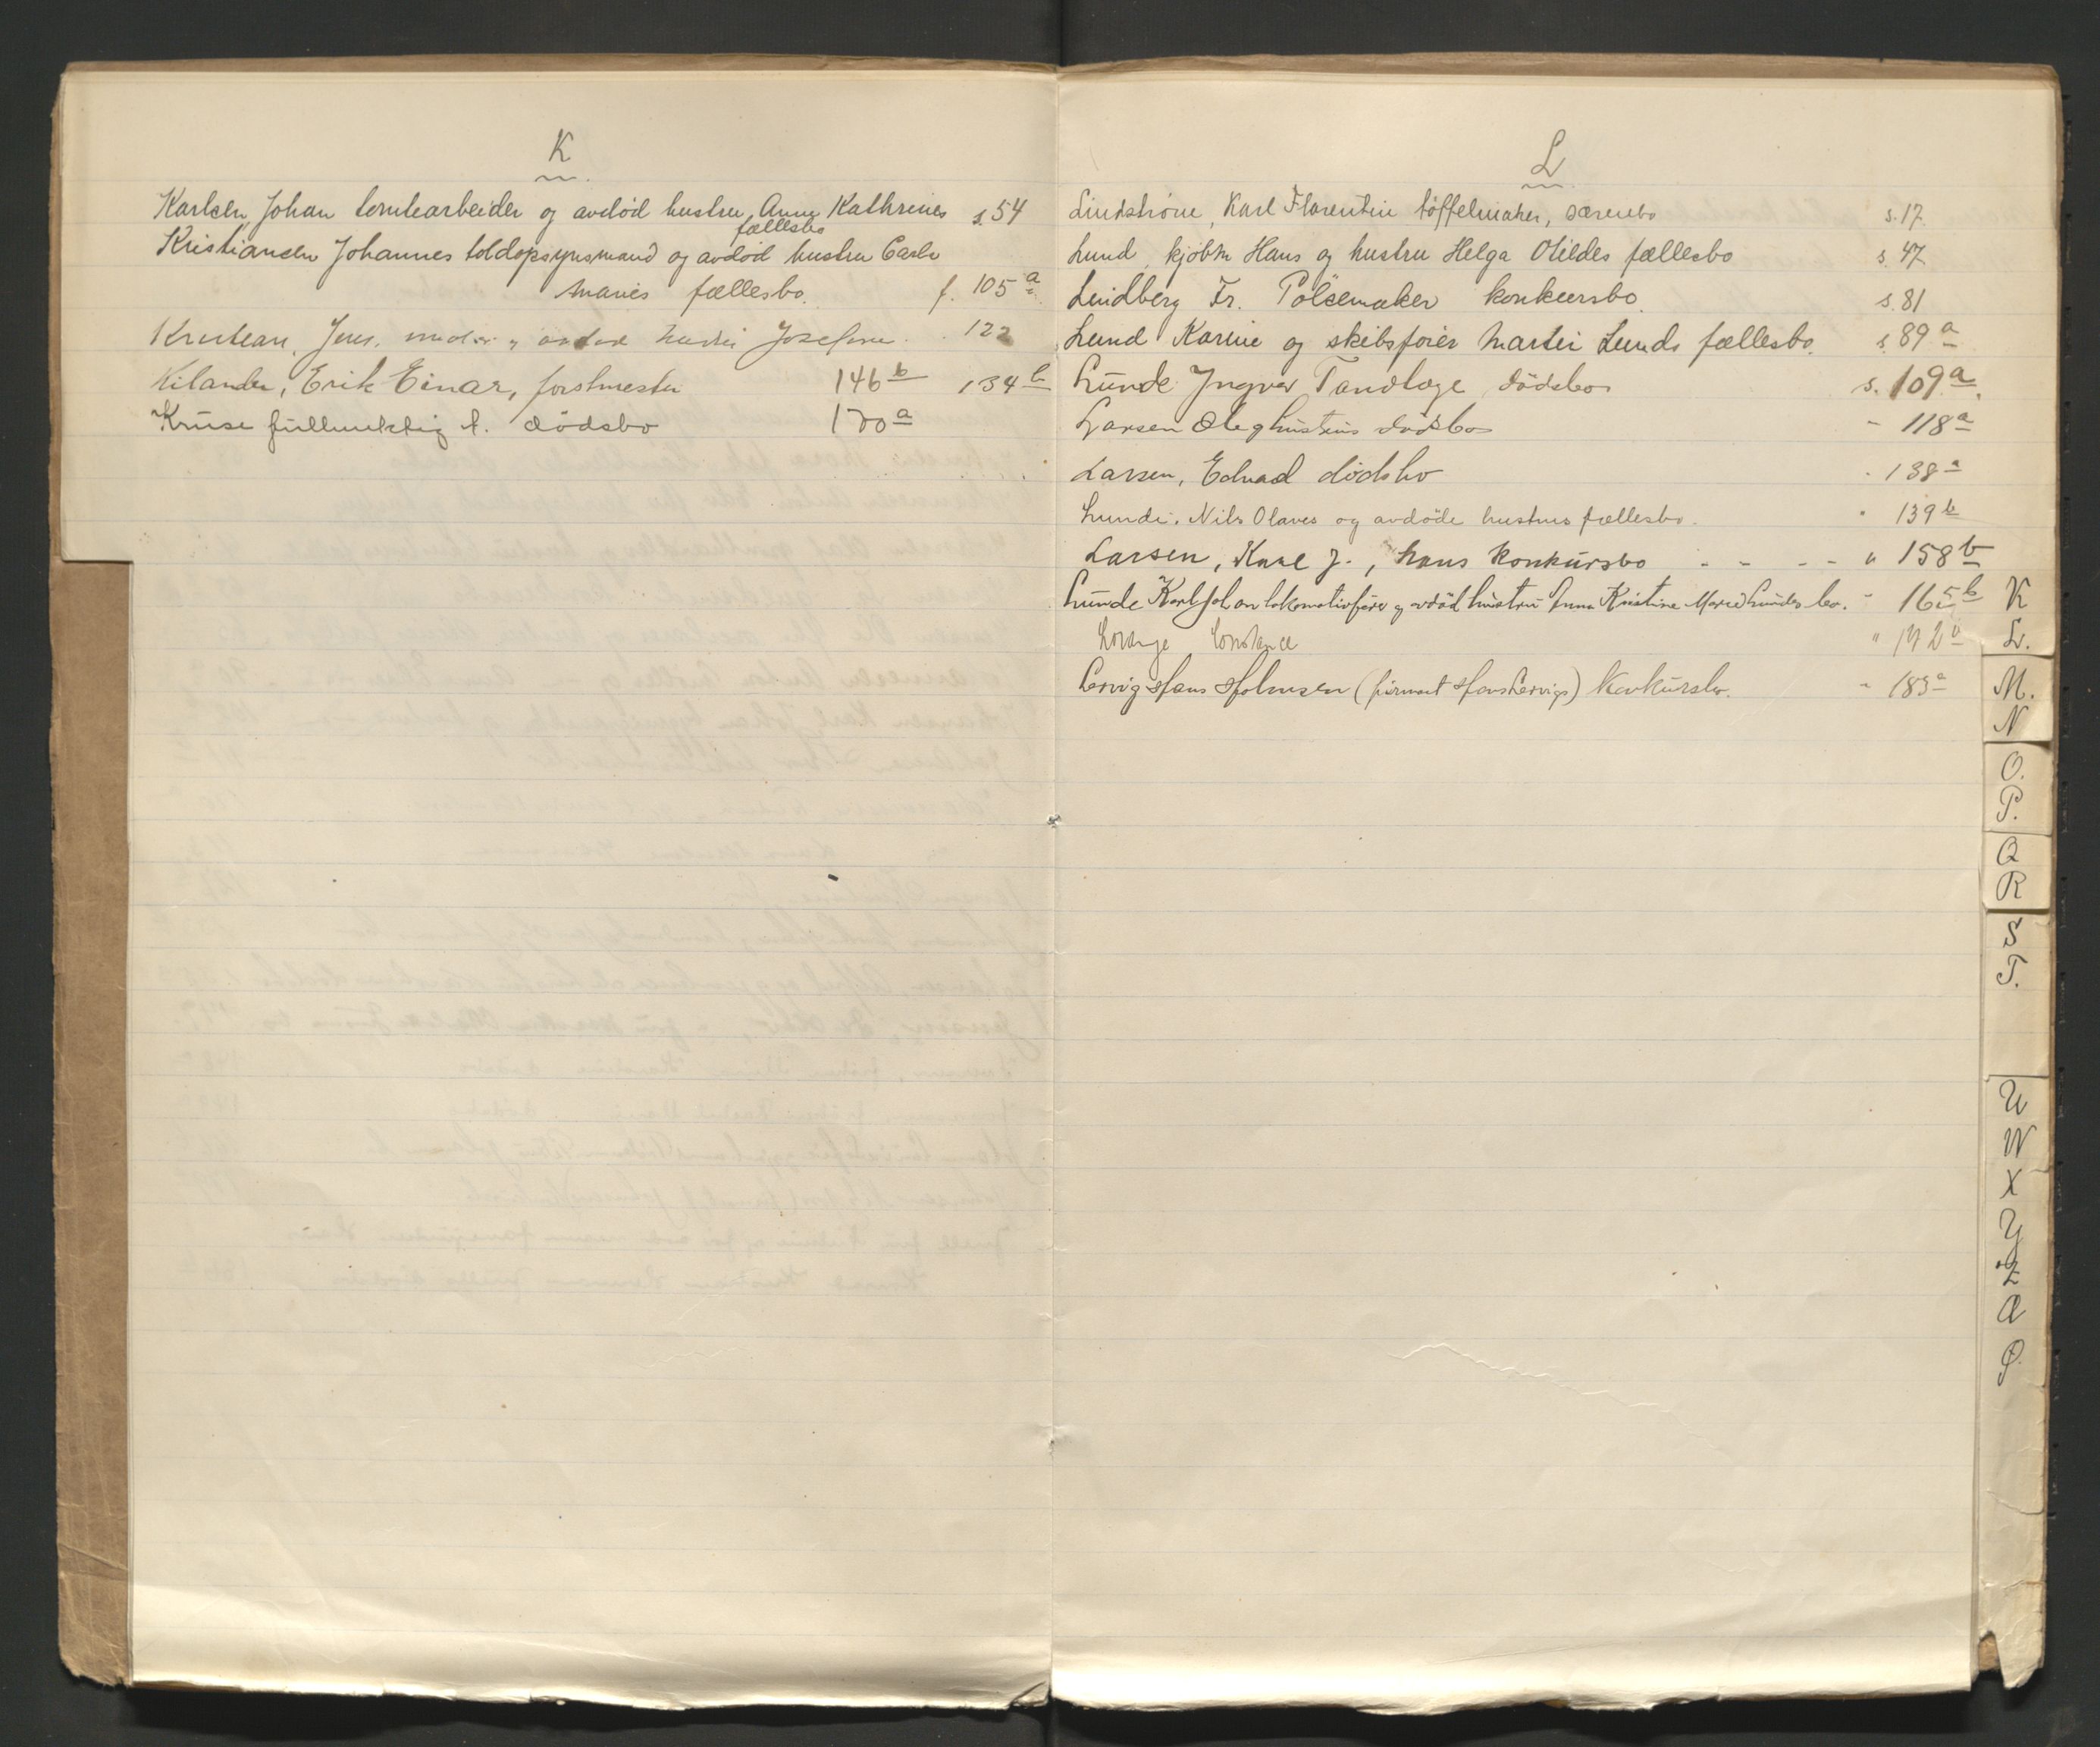 K
Karlsen, Johan tomtearbeider og avdød hustru, Anne Kathrines s. 54
fællesbo
Kristiansen Johannes toldopsynsmand og avdöd hustru Carla
Maries fællesbo. f. 105 a
Jens, og hustru Josefine 122
Kilander, Erik Einar, forstmester 146 b 134 b
Kruse fuldmektig A. dödsbo 170 a
L
Lindstrøm, Karl Florentin töffelmaker, særebo s. 17.
Lund, kjöbm Hans og hustru Helga Otildes fællesbo s. 47
Lindberg Fr. Pölsemaker konkursbo s. 81
Lund Karine og skibsförer Martin Lunds fællesbo. s. 89 a
Lunde Yngvar Tandlæge dödsbo s. 109 a.
Larsen Ole og hustrus dödsbo - 118 a
Larsen, Edvard dödsbo - 138 a
Lunde, Nils Olaves og avdöde hustrus fællesbo. " 139 b
Larsen, Karl J., hans Konkursbo - - - - " 158 b
Lunde Karl Johan lokomotivförer og avdöd hustru Anna Kristine Marie Lundes bo. - 165 b
Lorange Constance " 172 a
Lervig Hans Holmsen (firmaet Hans Lervigs) Konkursbo. - 183 a
K
L.
M.
N
O.
P.
Q
R
S
T.
U
W
X
Y
Z
Æ
Ø.